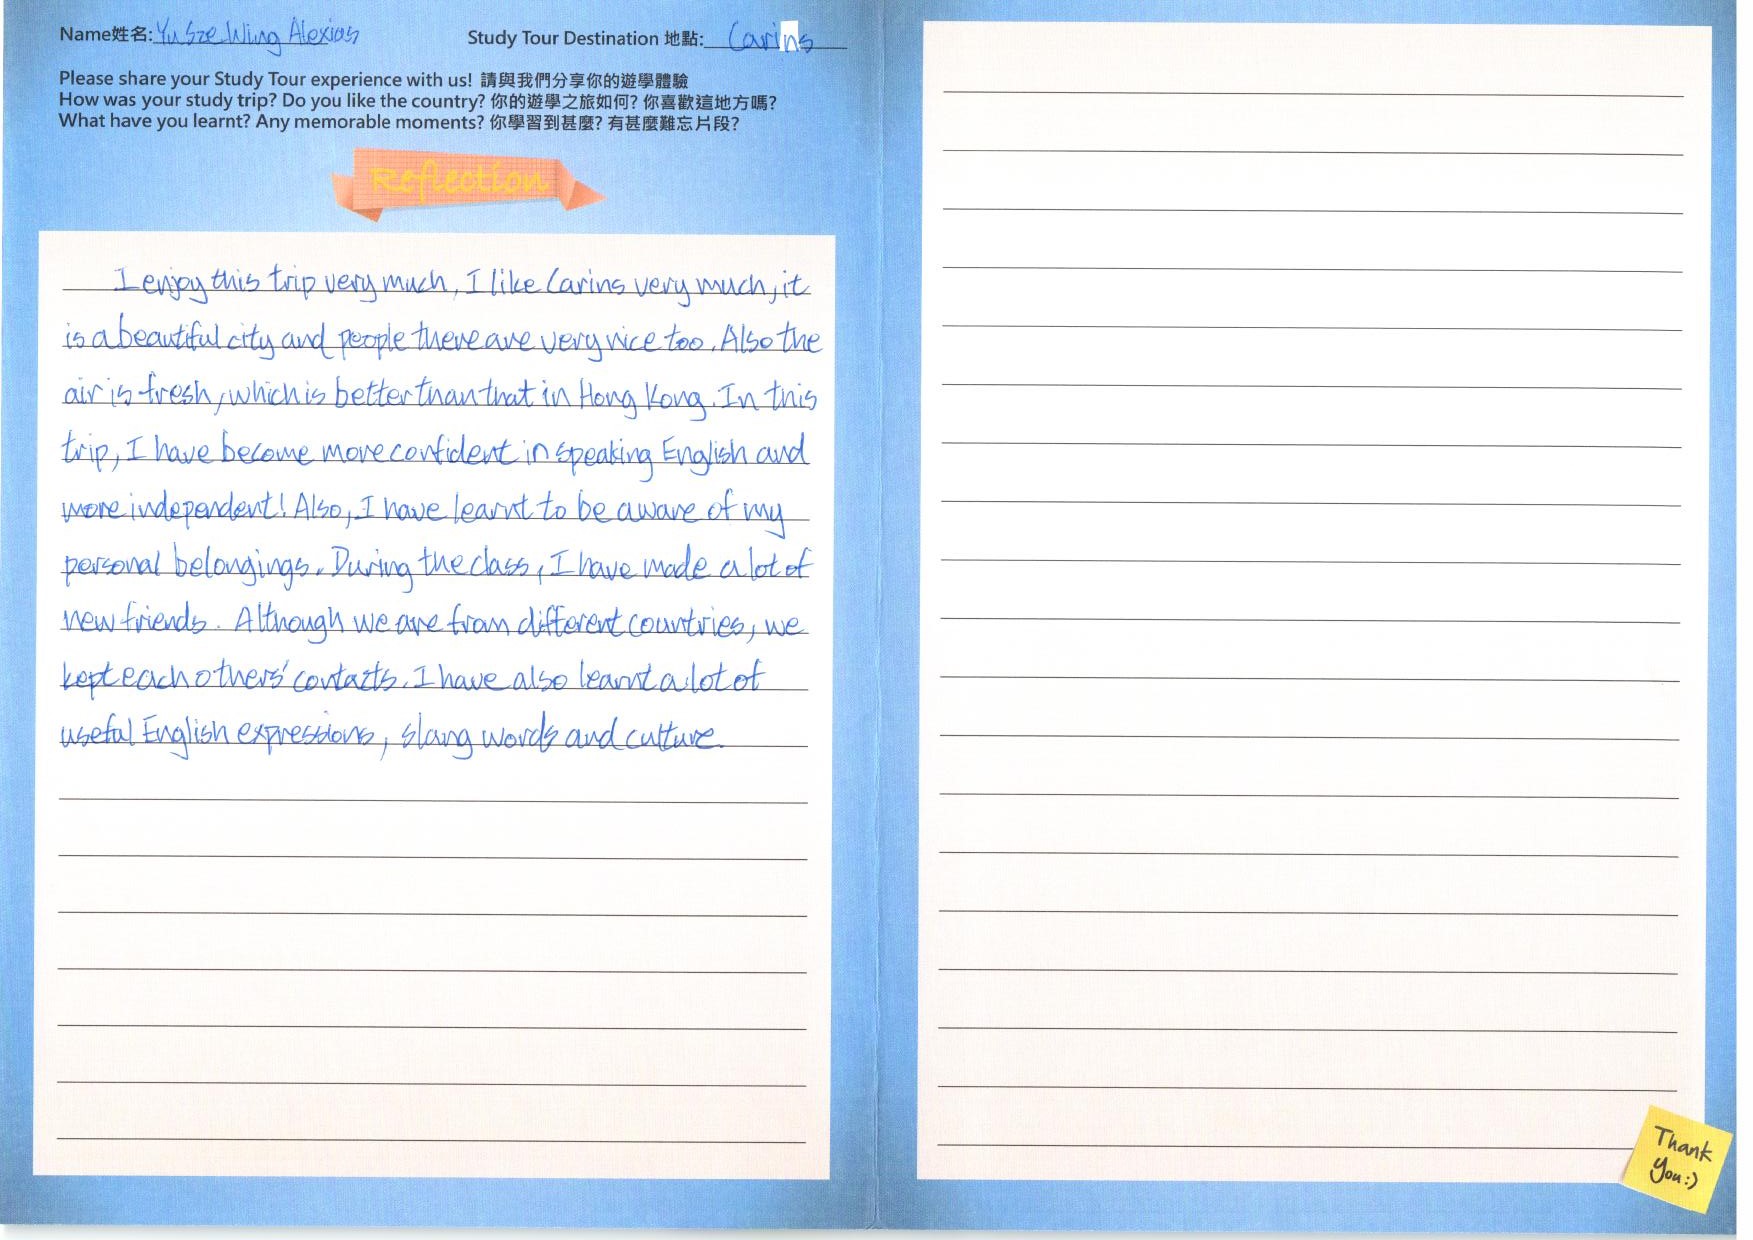 Name姓名: Yu Sze Wing Alexias
Study Tour Destination 地點: Carins
Please share your Study Tour experience with us! 請與我們分享你的遊學體驗
How was your study trip? Do you like the country? 你的遊學之旅如何? 你喜歡這地方嗎?
What have you learnt? Any memorable moments? 你學習到甚麼? 有甚麼難忘片段?
Reflection
I enjoy this trip very much, I like Carins very much, it
is a beautiful city and people there are very nice too. Also the
air is fresh, which is better than that in Hong Kong. In this
trip, I have become more confident in speaking English and
more independent! Also, I have learnt to be aware of my
personal belongings. During the class, I have made a lot of
new friends. Although we are from different countries, we
kept each others' contacts. I have also learnt a lot of
useful English expressions, slang words and culture.
Thank
you:)